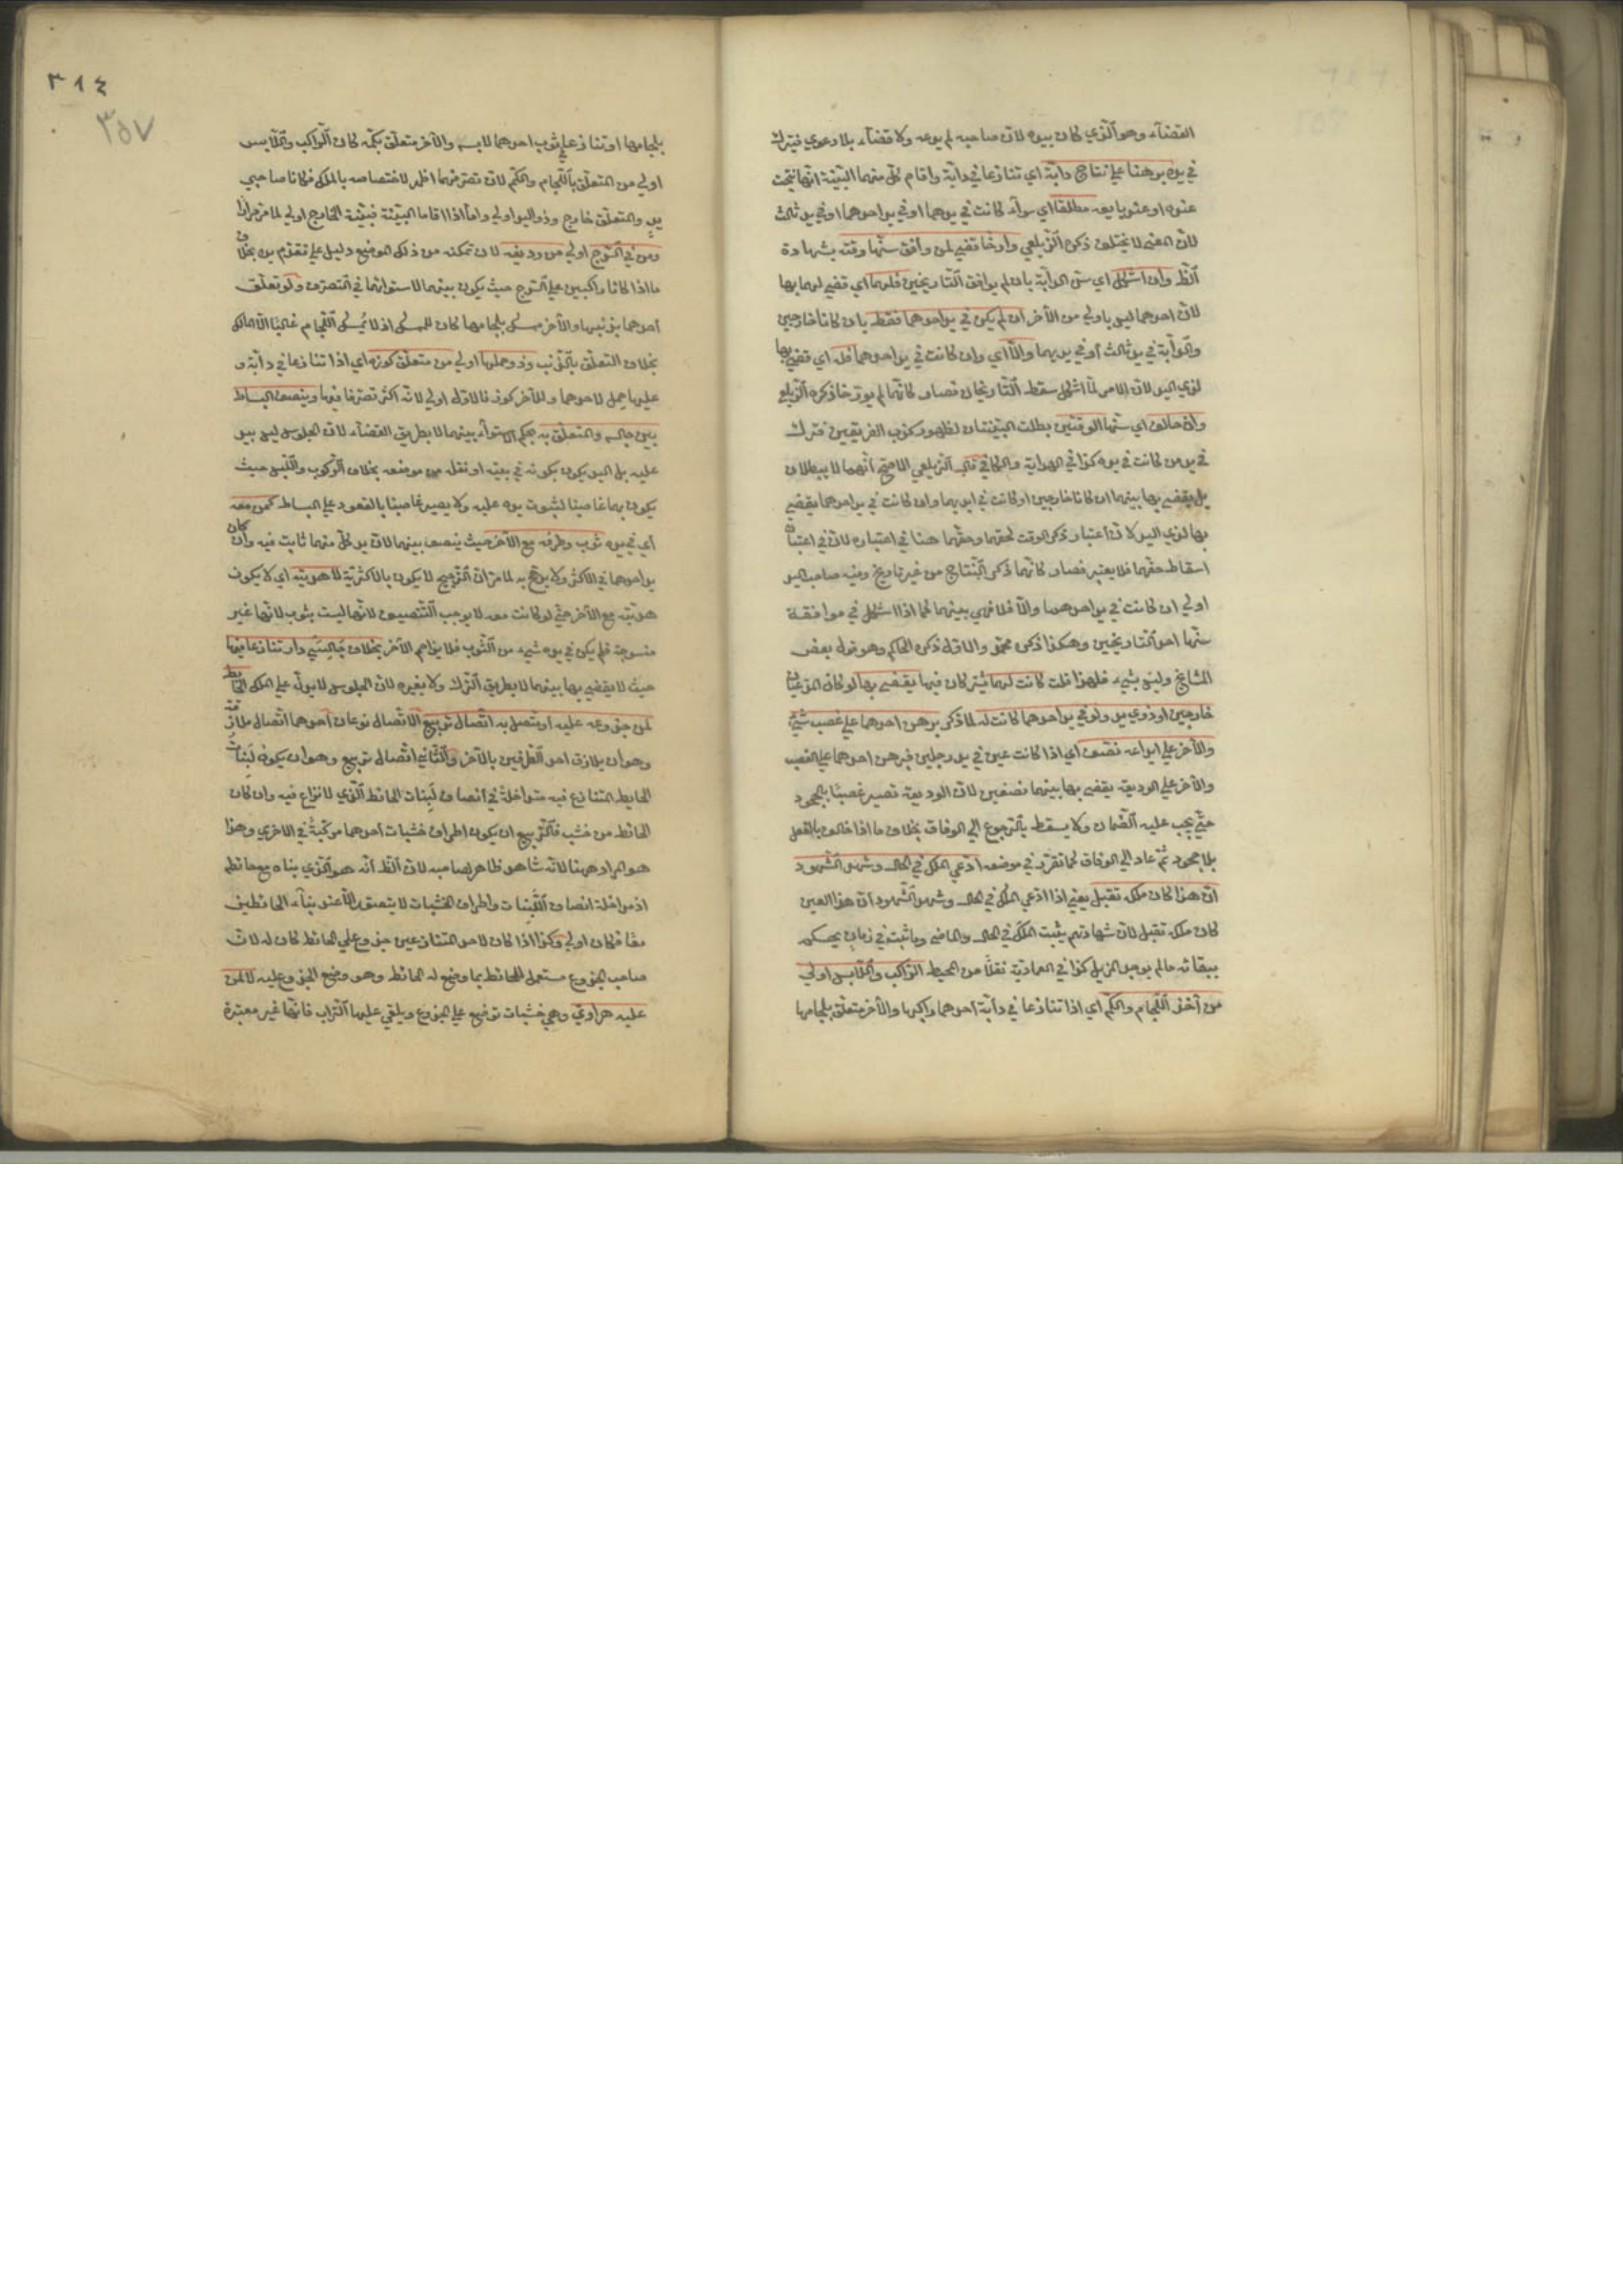 القضاء وهو الذي كان بيده لان صاحبه لم يدعه ولا قضاء بلا دعوي فيترك
في يده برهنا علي نتاج دابة اي تنازعا في دابة واقام كل منهما البينة انها نتجت
عنده او عند بايعه مطلقا اي سواء كانت في يدهما او في يد احدهما او في يد ثالث
لان المعني لا يختلف ذكره الزيلعي وارخا قضي لمن وافق سنها وقته بشهادة
الظ وان اشكل اي سن الدابة بان لم يوافق التاريخين فلهما اي قضي لهما بها
لان احدهما ليس باولي من الآخر ان لم يكن في يد احدهما فقط بان كانا خارجين
والدابة في يد ثالث او في يديهما والا اي وان كانت في يد احدهما فله اي قضي بها
لذي اليد لان الامر لما اشكل سقط التاريخان فصار كانهما لم يورخا ذكره الزيلعي
وان خالف اي سنها الوقتين بطلت البينتان لظهور كذب الفريقين فترك
في يد من كانت في يده كذا في الهداية والكافي قال الزيلعي الاصح انهما لا يبطلان
بل يقضي بها بينهما ان كانا خارجين او كانت في ايديهما وان كانت في يد احدهما يقضي
بها لذي اليد لان اعتبار ذكر الوقت لحقهما وحقهما هنا في اعتباره لان في اعتباره
اسقاط حقهما فلا يعتبر فصار كانهما ذكرا النتاج من غير تاريخ وفيه صاحب اليد
اولي ان كانت في يد احدهما والا فلا فهي بينهما كما اذا اشكل في موافقة
سنها احد التاريخين وهكذا ذكره محمد والاول ذكره الحاكم وهو قول بعض
المشايخ وليس بشيء فلهذا قلت كانت لهما يشتركان فيها يقضي بها لو كان المدعيان
خارجين او ذوي يد ولو في يد احدهما كانت له لما ذكر برهن احدهما علي غصب شيء
والآخر علي ايداعه نصف اي اذا كانت عين في يد رجلين فبرهن احدهما علي الغصب
والآخر علي الوديعة يقضي بها بينهما نصفين لان الوديعة تصير غصبا بالجحود
حتي يجب عليه الضمان ولا يسقط بالرجوع الي الوفاق بخلاف ما اذا خالف بالفعل
بلا جحود ثم عاد الي الوفاق كما تقرر في موضعه ادعي الملك في الحال وشهد الشهود
ان هذا كان ملكه تقبل يعني اذا ادعي الملك في الحال وشهد الشهود ان هذا العين
كان ملكه تقبل لان شهادتهم يثبت الملك في الحال والماضي وما ثبت في زمان يحكم
ببقائه مالم يوجد المزيل كذا في العمادية نقلا من المحيط الراكب واللابس اولي
من آخذ اللجام والكم اي اذا تنازعا في دابة احدهما راكبها والآخر متعلق بلجامها
٣١٤
٣٥٧
بلجامها او تنازعا في ثوب احدهما لابسه والآخر متعلق بكمه كان الراكب واللابس
اولي من المتعلق باللجام والكم لان تصرفهما اظهر لاختصاصه بالملك فكانا صاحبي
يد والمتعلق خارج وذو اليد اولي واما اذا اقاما البينة فبينة الخارج اولي لما مر مرارا
ومن في السرج اولي من رديفه لان تمكنه من ذلك الموضع دليل علي تقدم يده بخلاف
ما اذا كانا راكبين علي السرج حيث يكون بينهما لاستوائهما في التصرف ولو تعلق
احدهما بذنبها والآخر ممسك بلجامها كان للممسك اذ لا يمسك اللجام غالبا الا المالك
بخلاف المتعلق بالذنب وذو حملها اولي من متعلق كوزه اي اذا تنازعا في دابة و
عليها حمل لاحدهما وللآخر كوز فالاول اولي لانه اكثر تصرفا فيها وينصف البساط
بين جالسه والمتعلق به بحكم الاستواء بينهما لا بطريق القضاء لان الجلوس ليس بيد
عليه بل اليد يكون بكونه في بيته او نقله من موضعه بخلاف الركوب واللبس حيث
يكون بهما غاصبا لثبوت يده عليه ولا يصير غاصبا بالقعود علي البساط كمن معه
اي في يده ثوب وطرفه مع الآخر حيث ينصف بينهما لان يد كل منهما ثابت فيه وان كان
يد احدهما في الاكثر ولا يرجح به لما مر ان الترجيح لا يكون بالاكثرية لا هدبته اي لا يكون
هدبته مع الآخر حتي لو كانت معه لا يوجب التنصيف لانها ليست بثوب لانها غير
منسوجة فلم يكن في يده شيء من الثوب فلا يزاحم الآخر بخلاف جالسي دار تنازعا فيها
حيث لا يقضي بها بينهما لا بطريق الترك ولا بغيره لان الجلوس لا يدل علي الملك الحايط
لمن جذوعه عليه او متصل به اتصال تربيع الاتصال نوعان احدهما اتصال ملازقة
وهو ان يلازق احد الطرفين بالآخر والثاني اتصال تربيع وهو ان يكون لبنات
الحايط المتنازع فيه متداخلة في انصاف لبنات الحائط الذي لا نزاع فيه وان كان
الحائط من خشب فالتربيع ان يكون اطراف خشبات احدهما مركبة في الاخري وهذا
هو المراد ههنا لانه شاهد ظاهر لصاحبه لان الظ انه هو الذي بناه مع حائطه
اذ مداخلة انصاف اللبنات واطراف الخشبات لا يتصور الا عند بناء الحائطين
معا فكان اولي وكذا اذا كان لاحد المتنازعين جذوع علي الحائط كان له لان
صاحب الجذوع مستعمل للحائط بما وضع له الحائط وهو وضع الجذوع عليه لا لمن
عليه هرادي وهي خشبات توضع علي الجذوع ويلقي عليها التراب فانها غير معتبرة